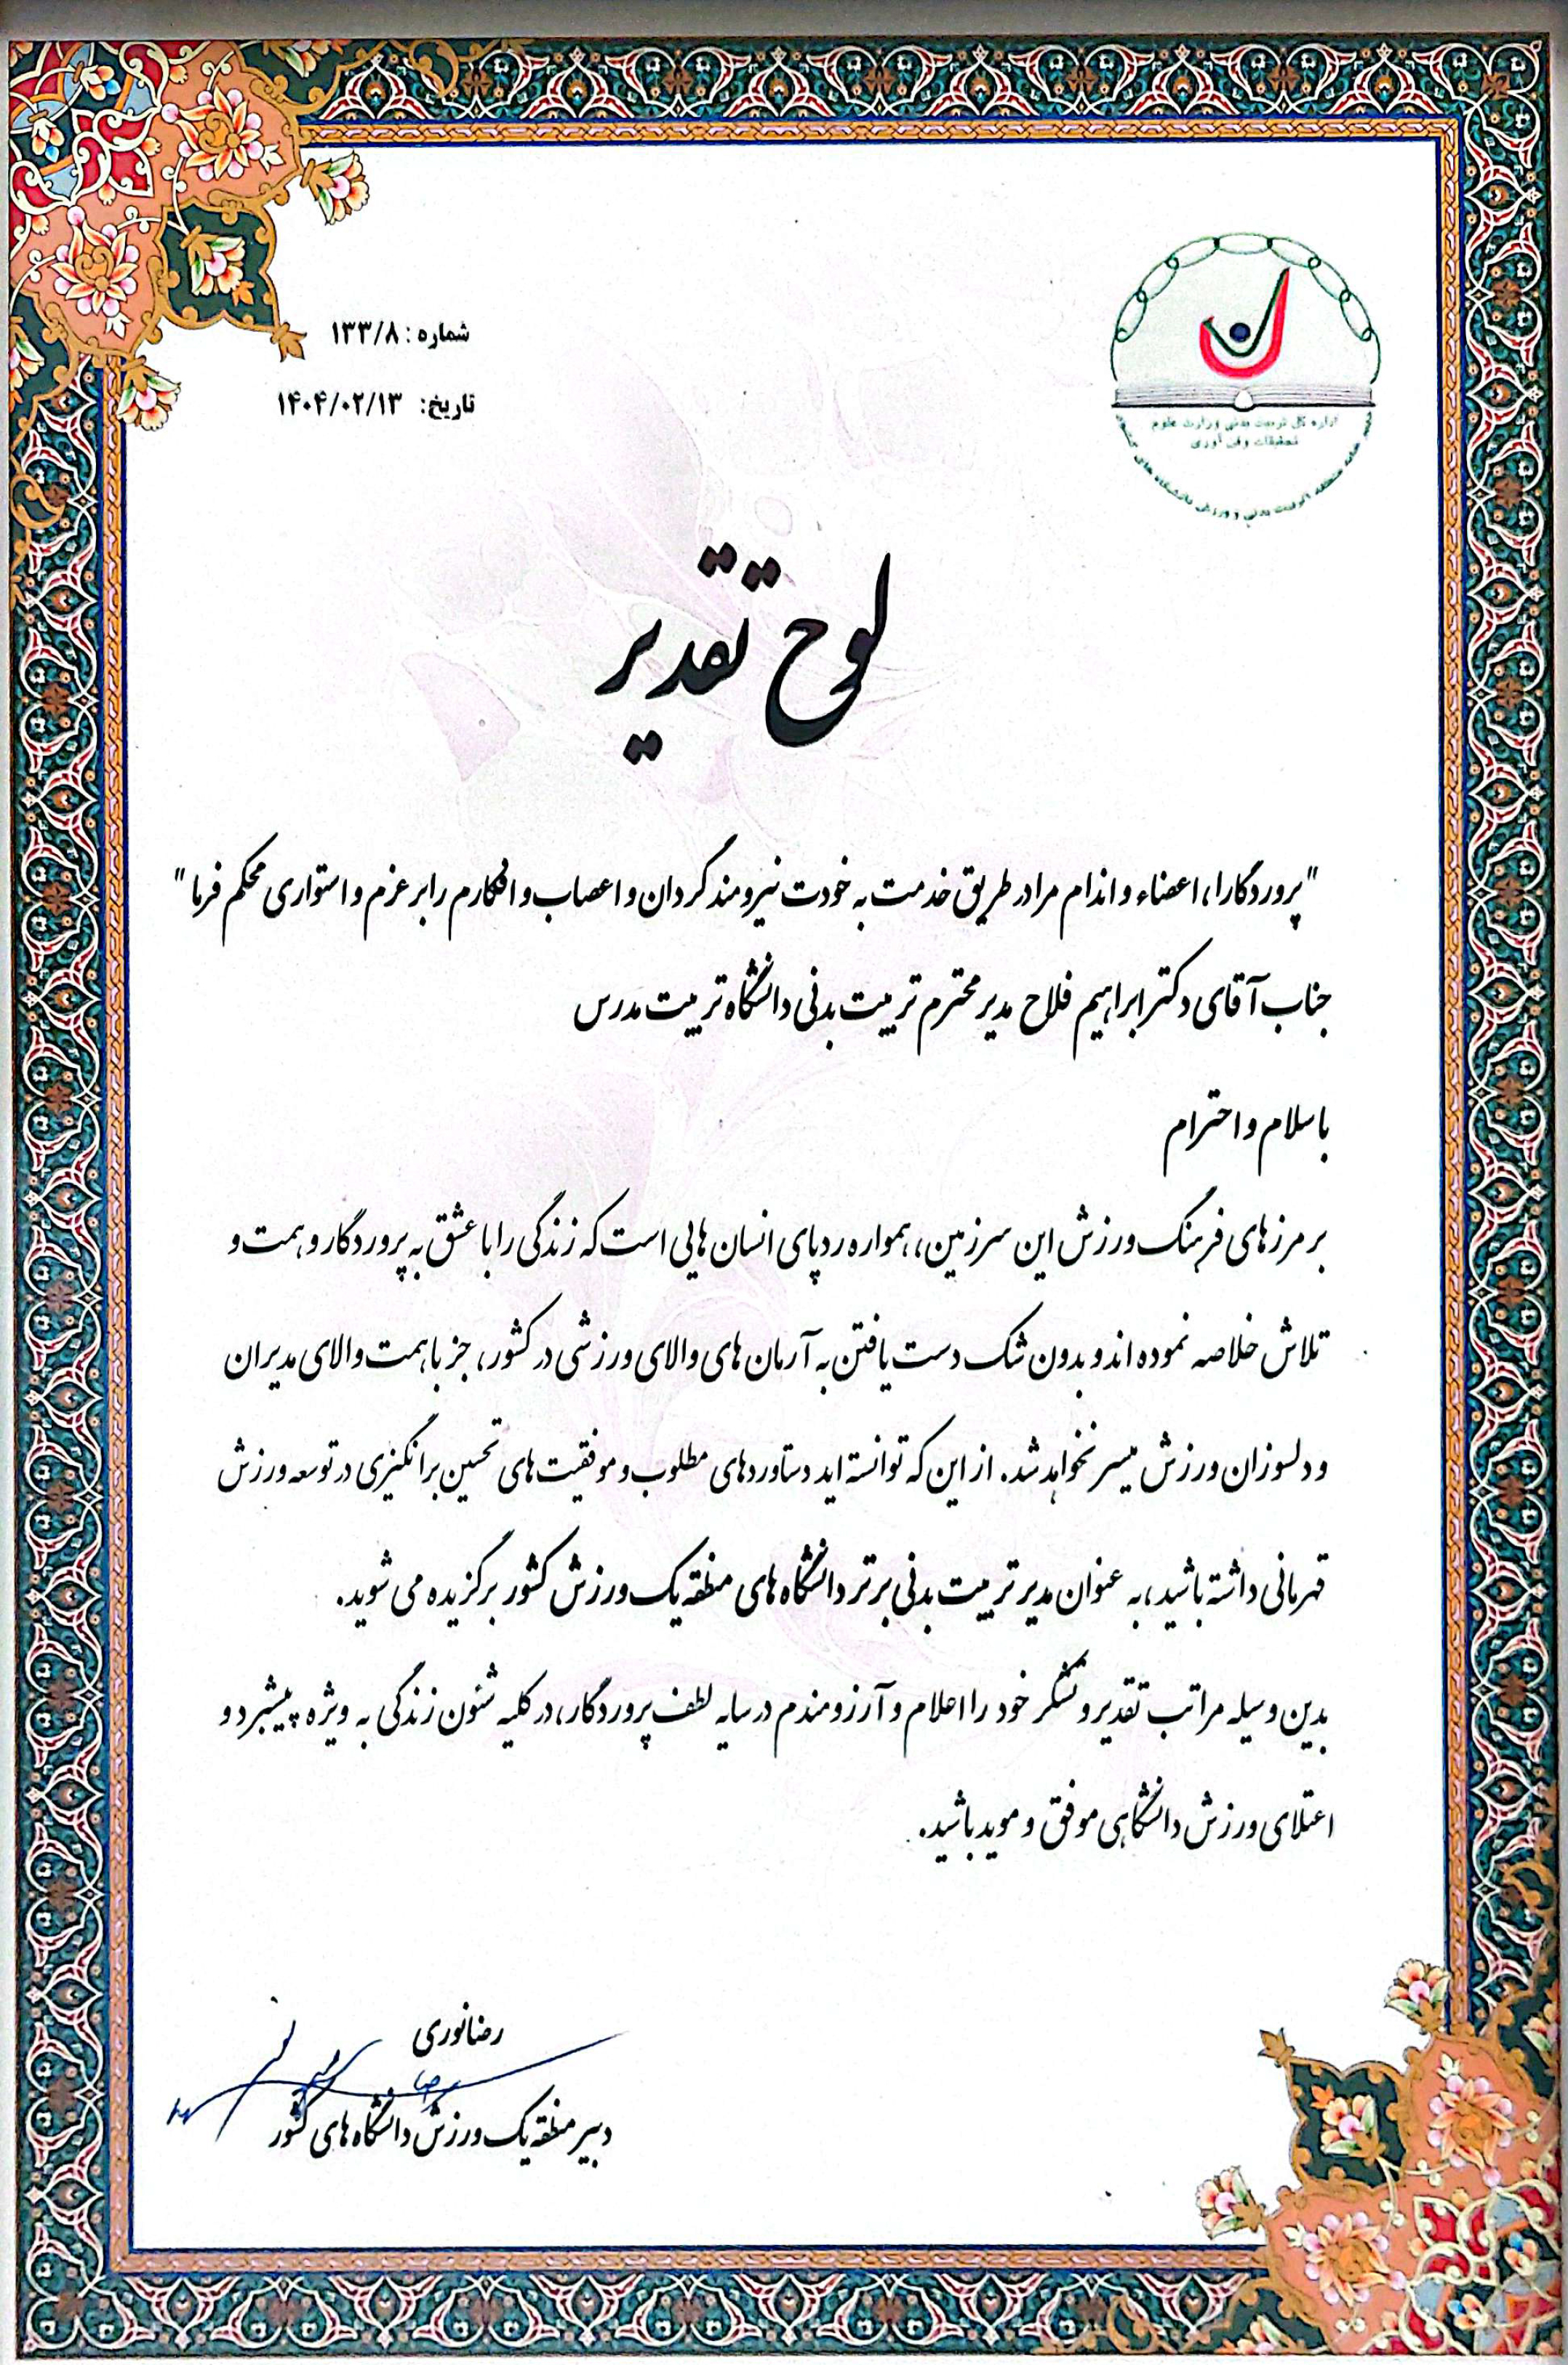 شماره: ۱۳۳/۸
تاریخ: ۱۴۰۴/۰۲/۱۳
اداره کل تربیت بدنی وزارت علوم
تحقیقات و فن آوری
لوح تقدیر
"پروردگارا، اعضاء و اندام مرا در طریق خدمت به خودت نیرومند گردان و اعصاب و افکارم را بر عزم و استواری محکم فرما"
جناب آقای دکتر ابراهیم فلاح مدیر محترم تربیت بدنی دانشگاه تربیت مدرس
با سلام و احترام
بر مرزهای فرهنگ ورزش این سرزمین، همواره ردپای انسان هایی است که زندگی را با عشق به پروردگار و همت و
تلاش خلاصه نموده اند و بدون شک دست یافتن به آرمان های والای ورزشی در کشور، جز با همت والای مدیران
و دلسوزان ورزش میسر نخواهد شد. از این که توانسته اید دستاوردهای مطلوب و موفقیت های تحسین برانگیزی در توسعه ورزش
قهرمانی داشته باشید، به عنوان مدیر تربیت بدنی برتر دانشگاه های منطقه یک ورزش کشور برگزیده می شوید.
بدین وسیله مراتب تقدیر و تشکر خود را اعلام و آرزومندم در سایه لطف پروردگار، در کلیه شئون زندگی به ویژه پیشبرد و
اعتلای ورزش دانشگاهی موفق و موید باشید.
رضا نوری
دبیر منطقه یک ورزش دانشگاه های کشور